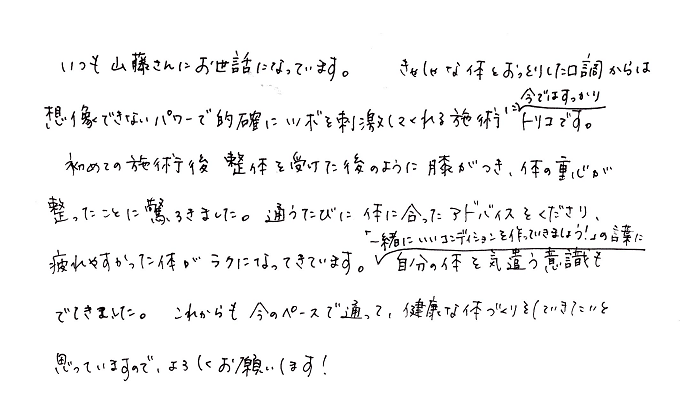 いつも山藤さんにお世話になっています。 きゃしゃな体とおっとりした口調からは
想像できないパワーで的確にツボを刺激してくれる施術に今ではすっかりトリコです。
初めての施術後 整体を受けた後のように膝がつき、体の重心が
整ったことに驚ろきました。通うたびに体に合ったアドバイスをくださり、
疲れやすかった体がラクになってきています。「一緒にいいコンディションを作っていきましょう!」の言葉に自分の体を気遣う意識も
でてきました。 これからも今のペースで通って、健康な体づくりをしていきたいと
思っていますので、よろしくお願いします!